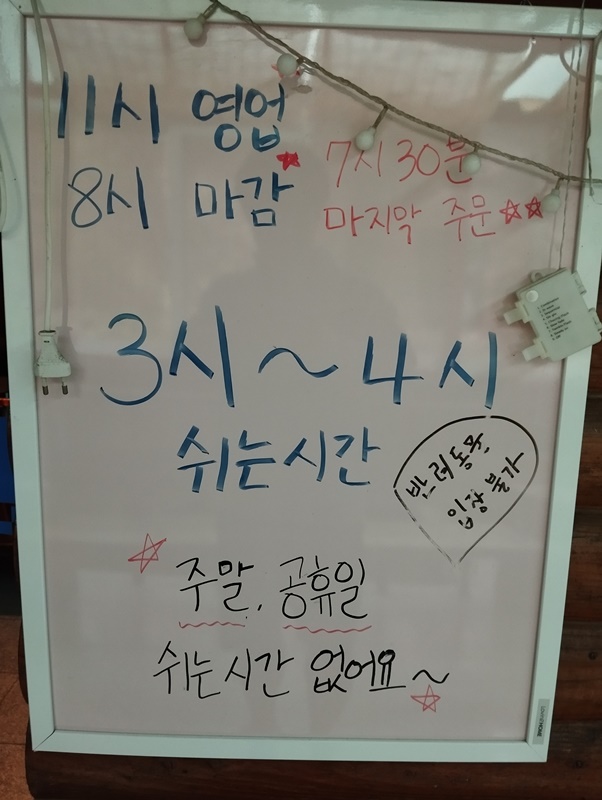 11시 영업
8시 마감
7시 30분
마지막 주문
3시~4시
쉬는시간
반려동물,
입장 불가
주말, 공휴일
쉬는시간 없어요~